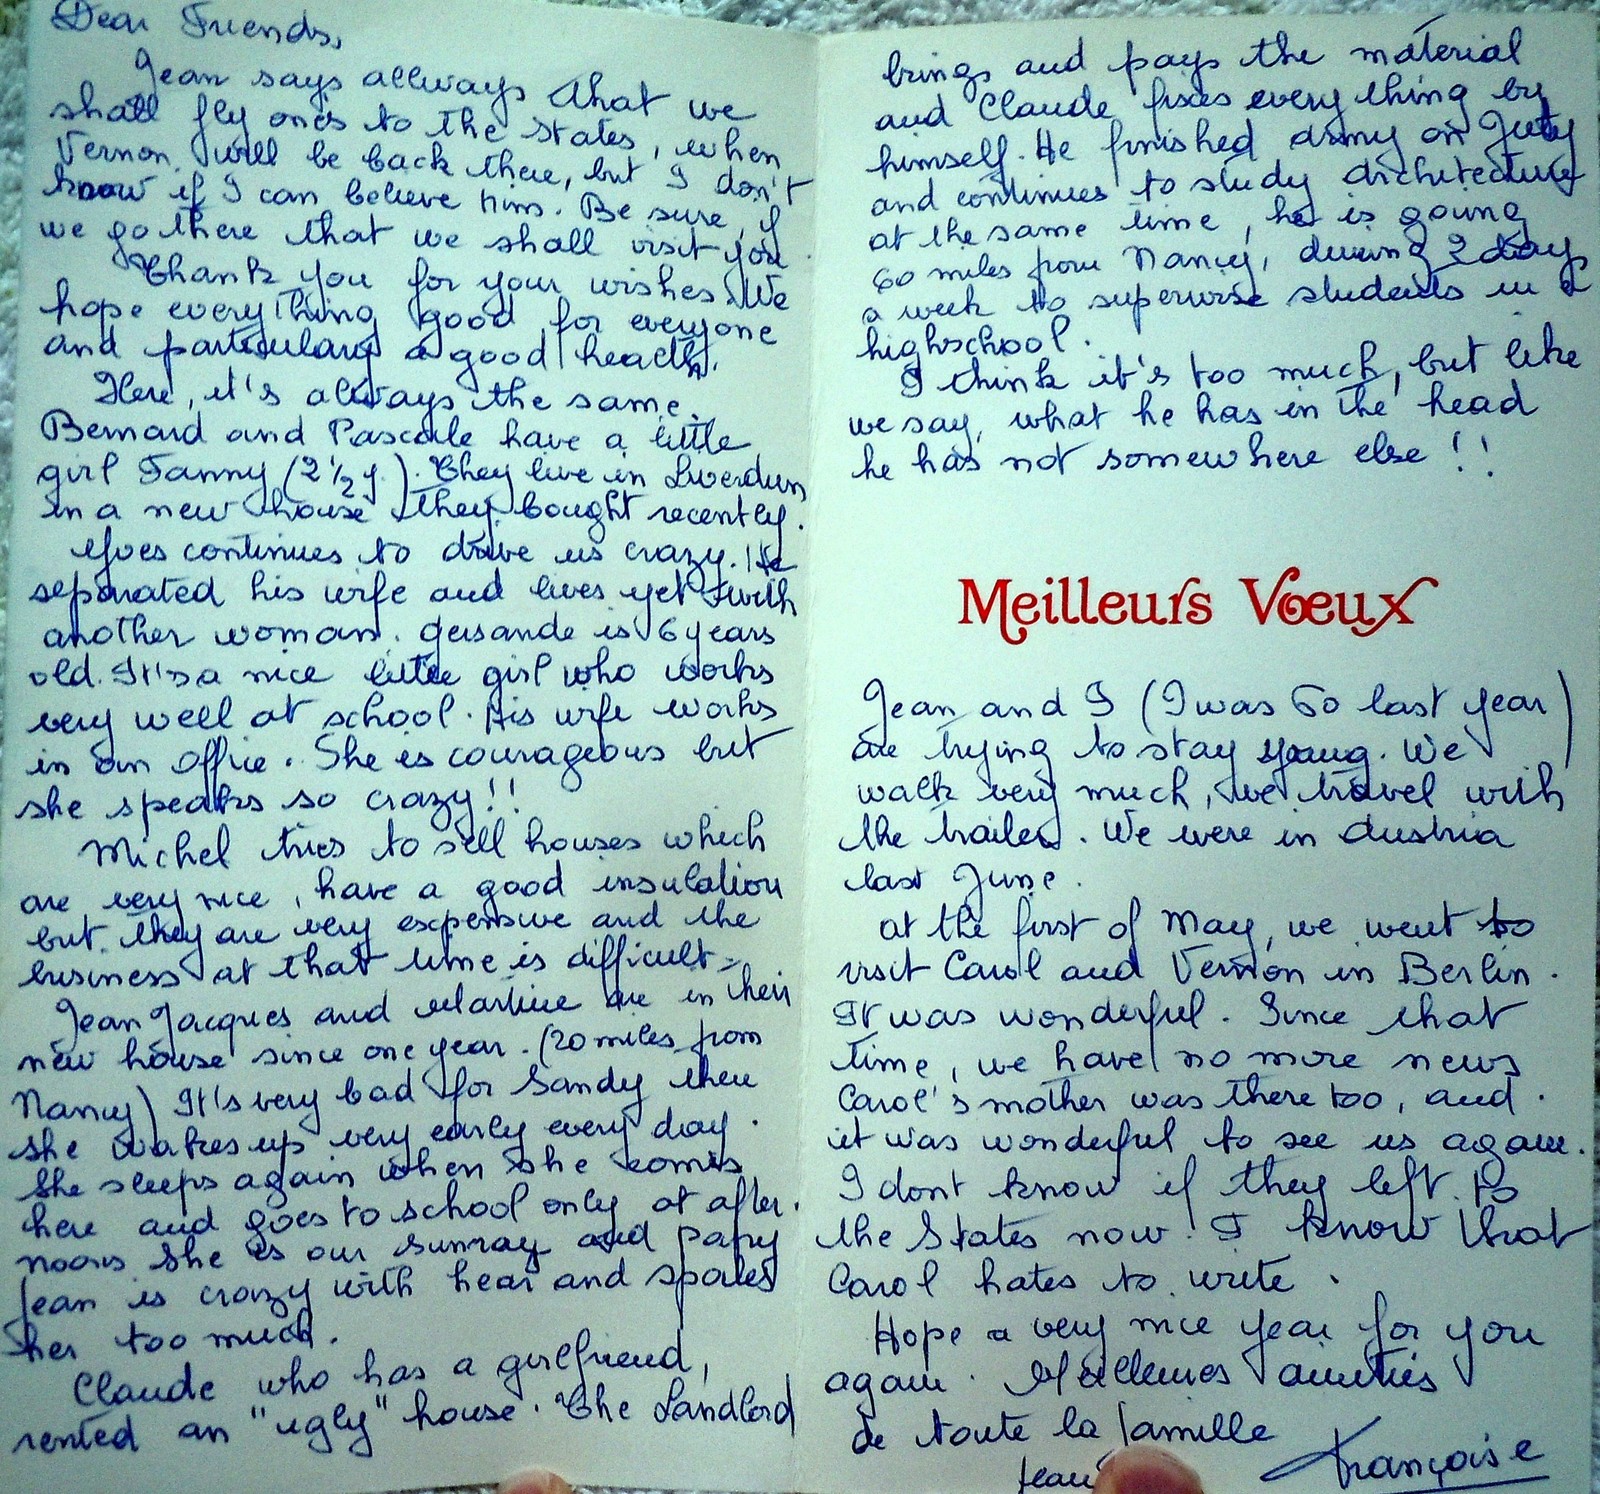 Dear Friends,
Jean says allways that we
shall fly ones to the States, when
Vernon will be back there, but I don't
know if I can believe him. Be sure, if
we go there that we shall visit you.
Thank you for your wishes. We
hope everything good for everyone
and particulary a good health.
Here, it's allways the same.
Bernard and Pascale have a little
girl Fanny (2 1/2 y.). They live in Liverdun
in a new house they bought recently.
Yves continues to drive us crazy. He
separated his wife and lives yet with
another woman. Gersande is 6 years
old. It's a nice little girl who works
very well at school. His wife works
in an office. She is courageous but
she speaks so crazy!!
Michel tries to sell houses which
are very nice, have a good insulation
but they are very expensive and the
business at that time is difficult.
Jean Jacques and Martine are in their
new house since one year. (20 miles from
Nancy) It's very bad for Sandy then
she wakes up very early every day.
She sleeps again when she comes
here and goes to school only at after.
noons. She is our sunray and papy
Jean is crazy with hear and spoiles
her too much.
Claude who has a girlfriend,
rented an "ugly" house. The Landlord
brings and pays the material
and Claude fixes everything by
himself. He finished army on July
and continues to study architecture
at the same time, he is going
60 miles from Nancy, during 2 days
a week to supervise students in a
highschool.
I think it's too much, but like
we say, what he has in the head
he has not somewhere else!!
Meilleurs Vœux
Jean and I (I was 60 last year)
are trying to stay young. We
walk very much, we travel with
the trailer. We were in Austria
last June.
at the first of May, we went to
visit Carol and Vernon in Berlin.
It was wonderful. Since that
time, we have no more news
Carol's mother was there too, and
it was wonderful to see us again.
I dont know if they left to
the States now. I know that
Carol hates to write.
Hope a very nice year for you
again. Meilleures amitiés
de toute la famille
Jean
Françoise